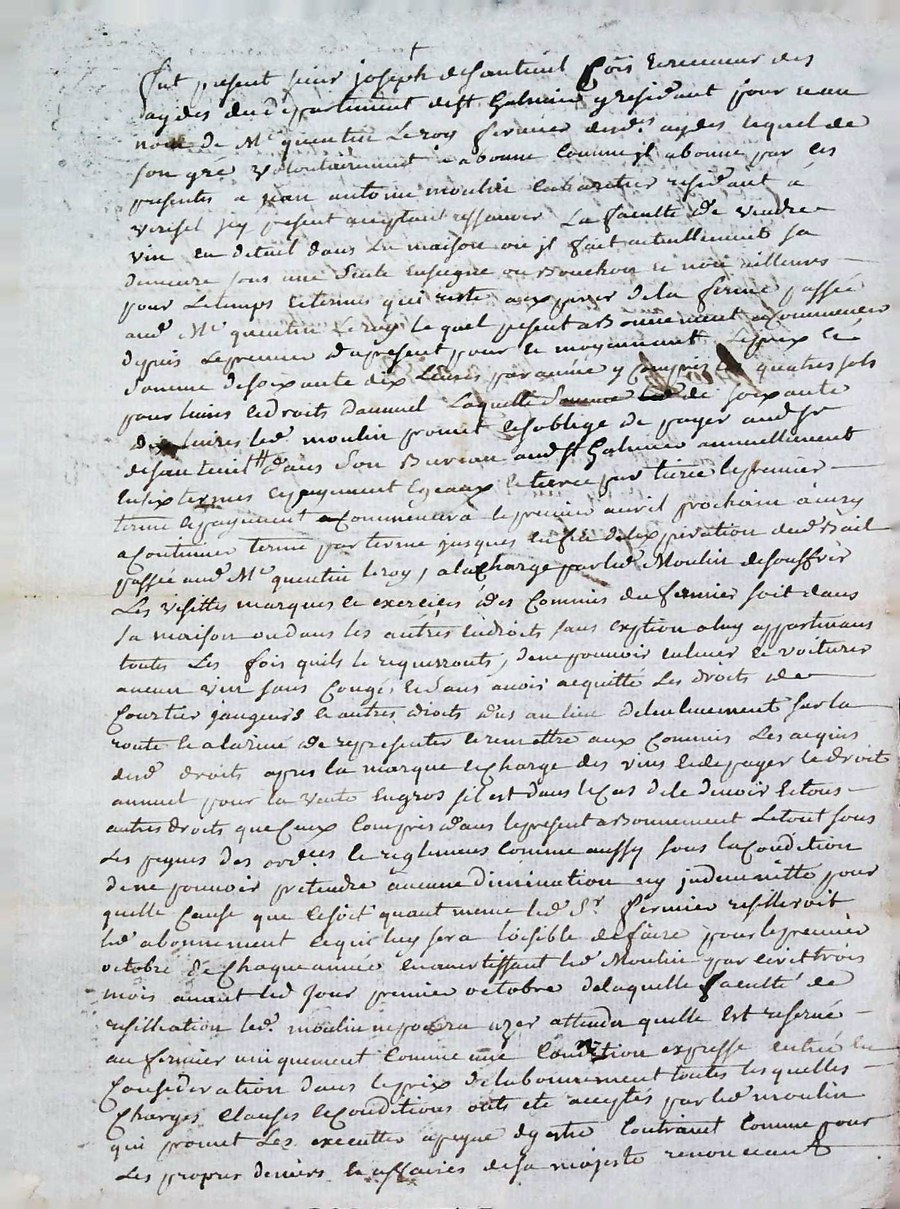 fut present sieur joseph desauteuil Cois Receveur des
aydes du departiment de St Galmier y residant pour et au
nom de Me quentin Leroy fermier desd.s aydes lequel de
son gré volontairement a abonné comme jl abonne par ces
presentes a jean antoine moulin cabaretier residant a
verisel jcy present acceptant la faculté de vendre
vin en detail dans La maison ou jl fait actuellement sa
demeure sous une seule Enseigne ou Bouchon et non ailleurs
pour Letemps et termes qui reste a expirer de la ferme passée
aud. Me quentin Leroy lequel present abonnement a commencer
depuis Lepremier du present, pour et moyennant Leprix et
somme de soixante dix Livres par année y compris les quatres sols
pour livres et droits dannuel Laquelle de soixante
dix livres led. moulin promet et soblige de payer aud. Sr
desauteuil dans son Bureau aud. St Galmier annuellement
en six termes et payement Egeaux lepremier
terme et payement commencera le premier avril prochain ainsy
a Continuer terme par terme jusques expiration dud. Bail
passée aud. Me quentin leroy, a la charge par led. Moulin de souffrir
Les visittes marques et exercices des Commis du fermier soit dans
sa maison ou dans les autres endroits sans exption a luy appartenans
toutes Les fois quils le requerronts, de ne pouvoir enlever et voiturer
aucun vin sans Congé, et sans avoir acquitté Les droits de
Courtier jaugeurs et autres droits dus au lieu delenlevement sur la
route et alarivé de representer et remettre aux Commis Les acquis
desd. droits apres la marque et Charge des vins et de payer le droit
annuel pour la vente Engros sil est dans le cas de le devoir et tous
autres droits que Ceux Compris dans le present abonnement Le tout sous
Les peynes des ord.ces et reglements Comme aussy sous la Condition
de ne pouvoir pretendre aucune diminution ny jndemnitté pour
quelle Cause que ce soit quant meme led. Sr. fermier resilleroit
led. abonnement ce qui luy sera loisible de faire pour le premier
octobre de Chaque année en avertissant led. Moulin par ecrit trois
mois avant led. Jour premier octobre de laquelle faculté de
resilliation led. moulin ne poura uzer attendu quelle Est reservé
au fermier uniquement Comme une Condition expresse entrée en
Consideration dans le prix de labonnement toutes lesquelles
Charges, Clauses et Conditions onts eté acceptés par led. moulin
qui promet Les executter a peyne dy estre Contraint Comme pour
Les propres deniers et affaires de sa majesté renonceant